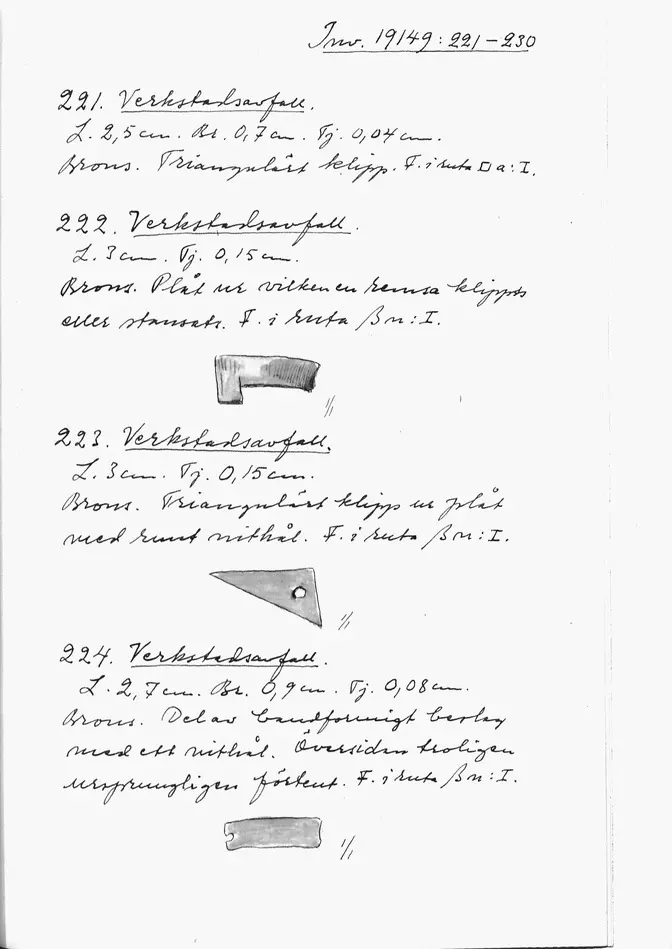 Inv. 19149:221-230
221. Verkstadsavfall.
L. 2,5 cm. Br. 0,7 cm. Tj. 0,04 cm.
Brons. Triangulärt klipp. F. i ruta □ a:I.
222. Verkstadsavfall.
L. 3 cm. Tj. 0,15 cm.
Brons. Plåt ur vilken en remsa klippts
eller stansats. F. i ruta ß n:I.
1/1
223. Verkstadsavfall.
L. 3 cm. Tj. 0,15 cm.
Brons. Triangulärt klipp ur plåt
med runt nithål. F. i ruta ß n:I.
1/1
224. Verkstadsavfall.
L. 2,7 cm. Br. 0,9 cm. Tj. 0,08 cm.
Brons. Del av bandformigt beslag
med ett nithål. Översidan troligen
ursprungligen förtent. F. i ruta ß n:I.
1/1